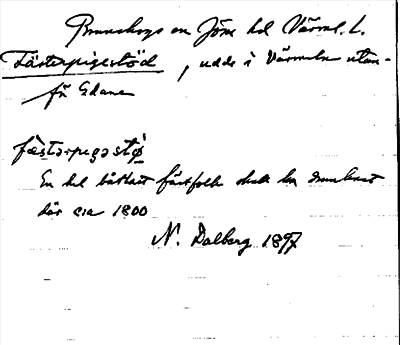 Brunskogs sn Jösse hd Värml. l.
Fästerpigestöd, udde i Värmeln utan-
för Edane
fæstərpegəstö̀
En del båtlast fästfolk skall ha drunknat
där c:a 1800
N. Dalberg 1897